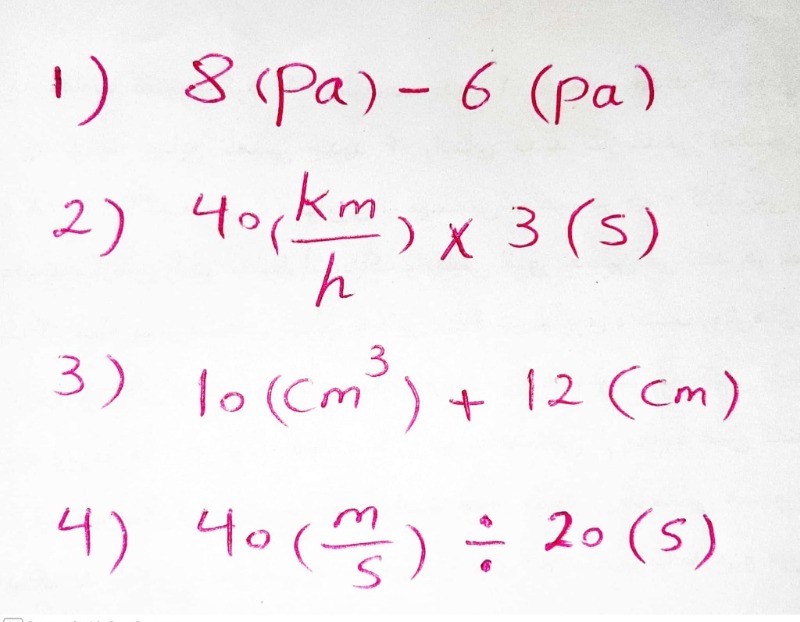 1) 8 (Pa) - 6 (pa)
2) 40 (km/h) x 3 (s)
3) 10 (cm³) + 12 (cm)
4) 40 (m/s) ÷ 20 (s)